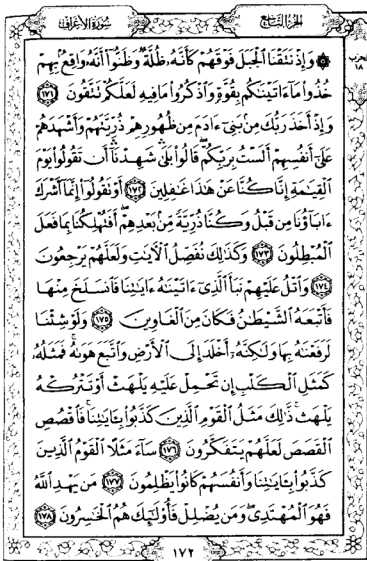 سورة الأعراف
الجزء التاسع
الحزب ١٨
۞ وَإِذْ نَتَقْنَا ٱلْجَبَلَ فَوْقَهُمْ كَأَنَّهُۥ ظُلَّةٌ وَظَنُّوٓا۟ أَنَّهُۥ وَاقِعٌۢ بِهِمْ
خُذُوا۟ مَآ ءَاتَيْنَٰكُم بِقُوَّةٍ وَٱذْكُرُوا۟ مَا فِيهِ لَعَلَّكُمْ تَتَّقُونَ ١٧١
وَإِذْ أَخَذَ رَبُّكَ مِنۢ بَنِىٓ ءَادَمَ مِن ظُهُورِهِمْ ذُرِّيَّتَهُمْ وَأَشْهَدَهُمْ
عَلَىٰٓ أَنفُسِهِمْ أَلَسْتُ بِرَبِّكُمْ ۖ قَالُوا۟ بَلَىٰ ۛ شَهِدْنَآ ۛ أَن تَقُولُوا۟ يَوْمَ
ٱلْقِيَٰمَةِ إِنَّا كُنَّا عَنْ هَٰذَا غَٰفِلِينَ ١٧٢ أَوْ تَقُولُوٓا۟ إِنَّمَآ أَشْرَكَ
ءَابَآؤُنَا مِن قَبْلُ وَكُنَّا ذُرِّيَّةً مِّنۢ بَعْدِهِمْ ۖ أَفَتُهْلِكُنَا بِمَا فَعَلَ
ٱلْمُبْطِلُونَ ١٧٣ وَكَذَٰلِكَ نُفَصِّلُ ٱلْءَايَٰتِ وَلَعَلَّهُمْ يَرْجِعُونَ
١٧٤ وَٱتْلُ عَلَيْهِمْ نَبَأَ ٱلَّذِىٓ ءَاتَيْنَٰهُ ءَايَٰتِنَا فَٱنسَلَخَ مِنْهَا
فَأَتْبَعَهُ ٱلشَّيْطَٰنُ فَكَانَ مِنَ ٱلْغَاوِينَ ١٧٥ وَلَوْ شِئْنَا
لَرَفَعْنَٰهُ بِهَا وَلَٰكِنَّهُۥٓ أَخْلَدَ إِلَى ٱلْأَرْضِ وَٱتَّبَعَ هَوَىٰهُ ۚ فَمَثَلُهُۥ
كَمَثَلِ ٱلْكَلْبِ إِن تَحْمِلْ عَلَيْهِ يَلْهَثْ أَوْ تَتْرُكْهُ
يَلْهَث ۚ ذَّٰلِكَ مَثَلُ ٱلْقَوْمِ ٱلَّذِينَ كَذَّبُوا۟ بِـَٔايَٰتِنَا ۚ فَٱقْصُصِ
ٱلْقَصَصَ لَعَلَّهُمْ يَتَفَكَّرُونَ ١٧٦ سَآءَ مَثَلًا ٱلْقَوْمُ ٱلَّذِينَ
كَذَّبُوا۟ بِـَٔايَٰتِنَا وَأَنفُسَهُمْ كَانُوا۟ يَظْلِمُونَ ١٧٧ مَن يَهْدِ ٱللَّهُ
فَهُوَ ٱلْمُهْتَدِى ۖ وَمَن يُضْلِلْ فَأُو۟لَٰٓئِكَ هُمُ ٱلْخَٰسِرُونَ ١٧٨
١٧٢